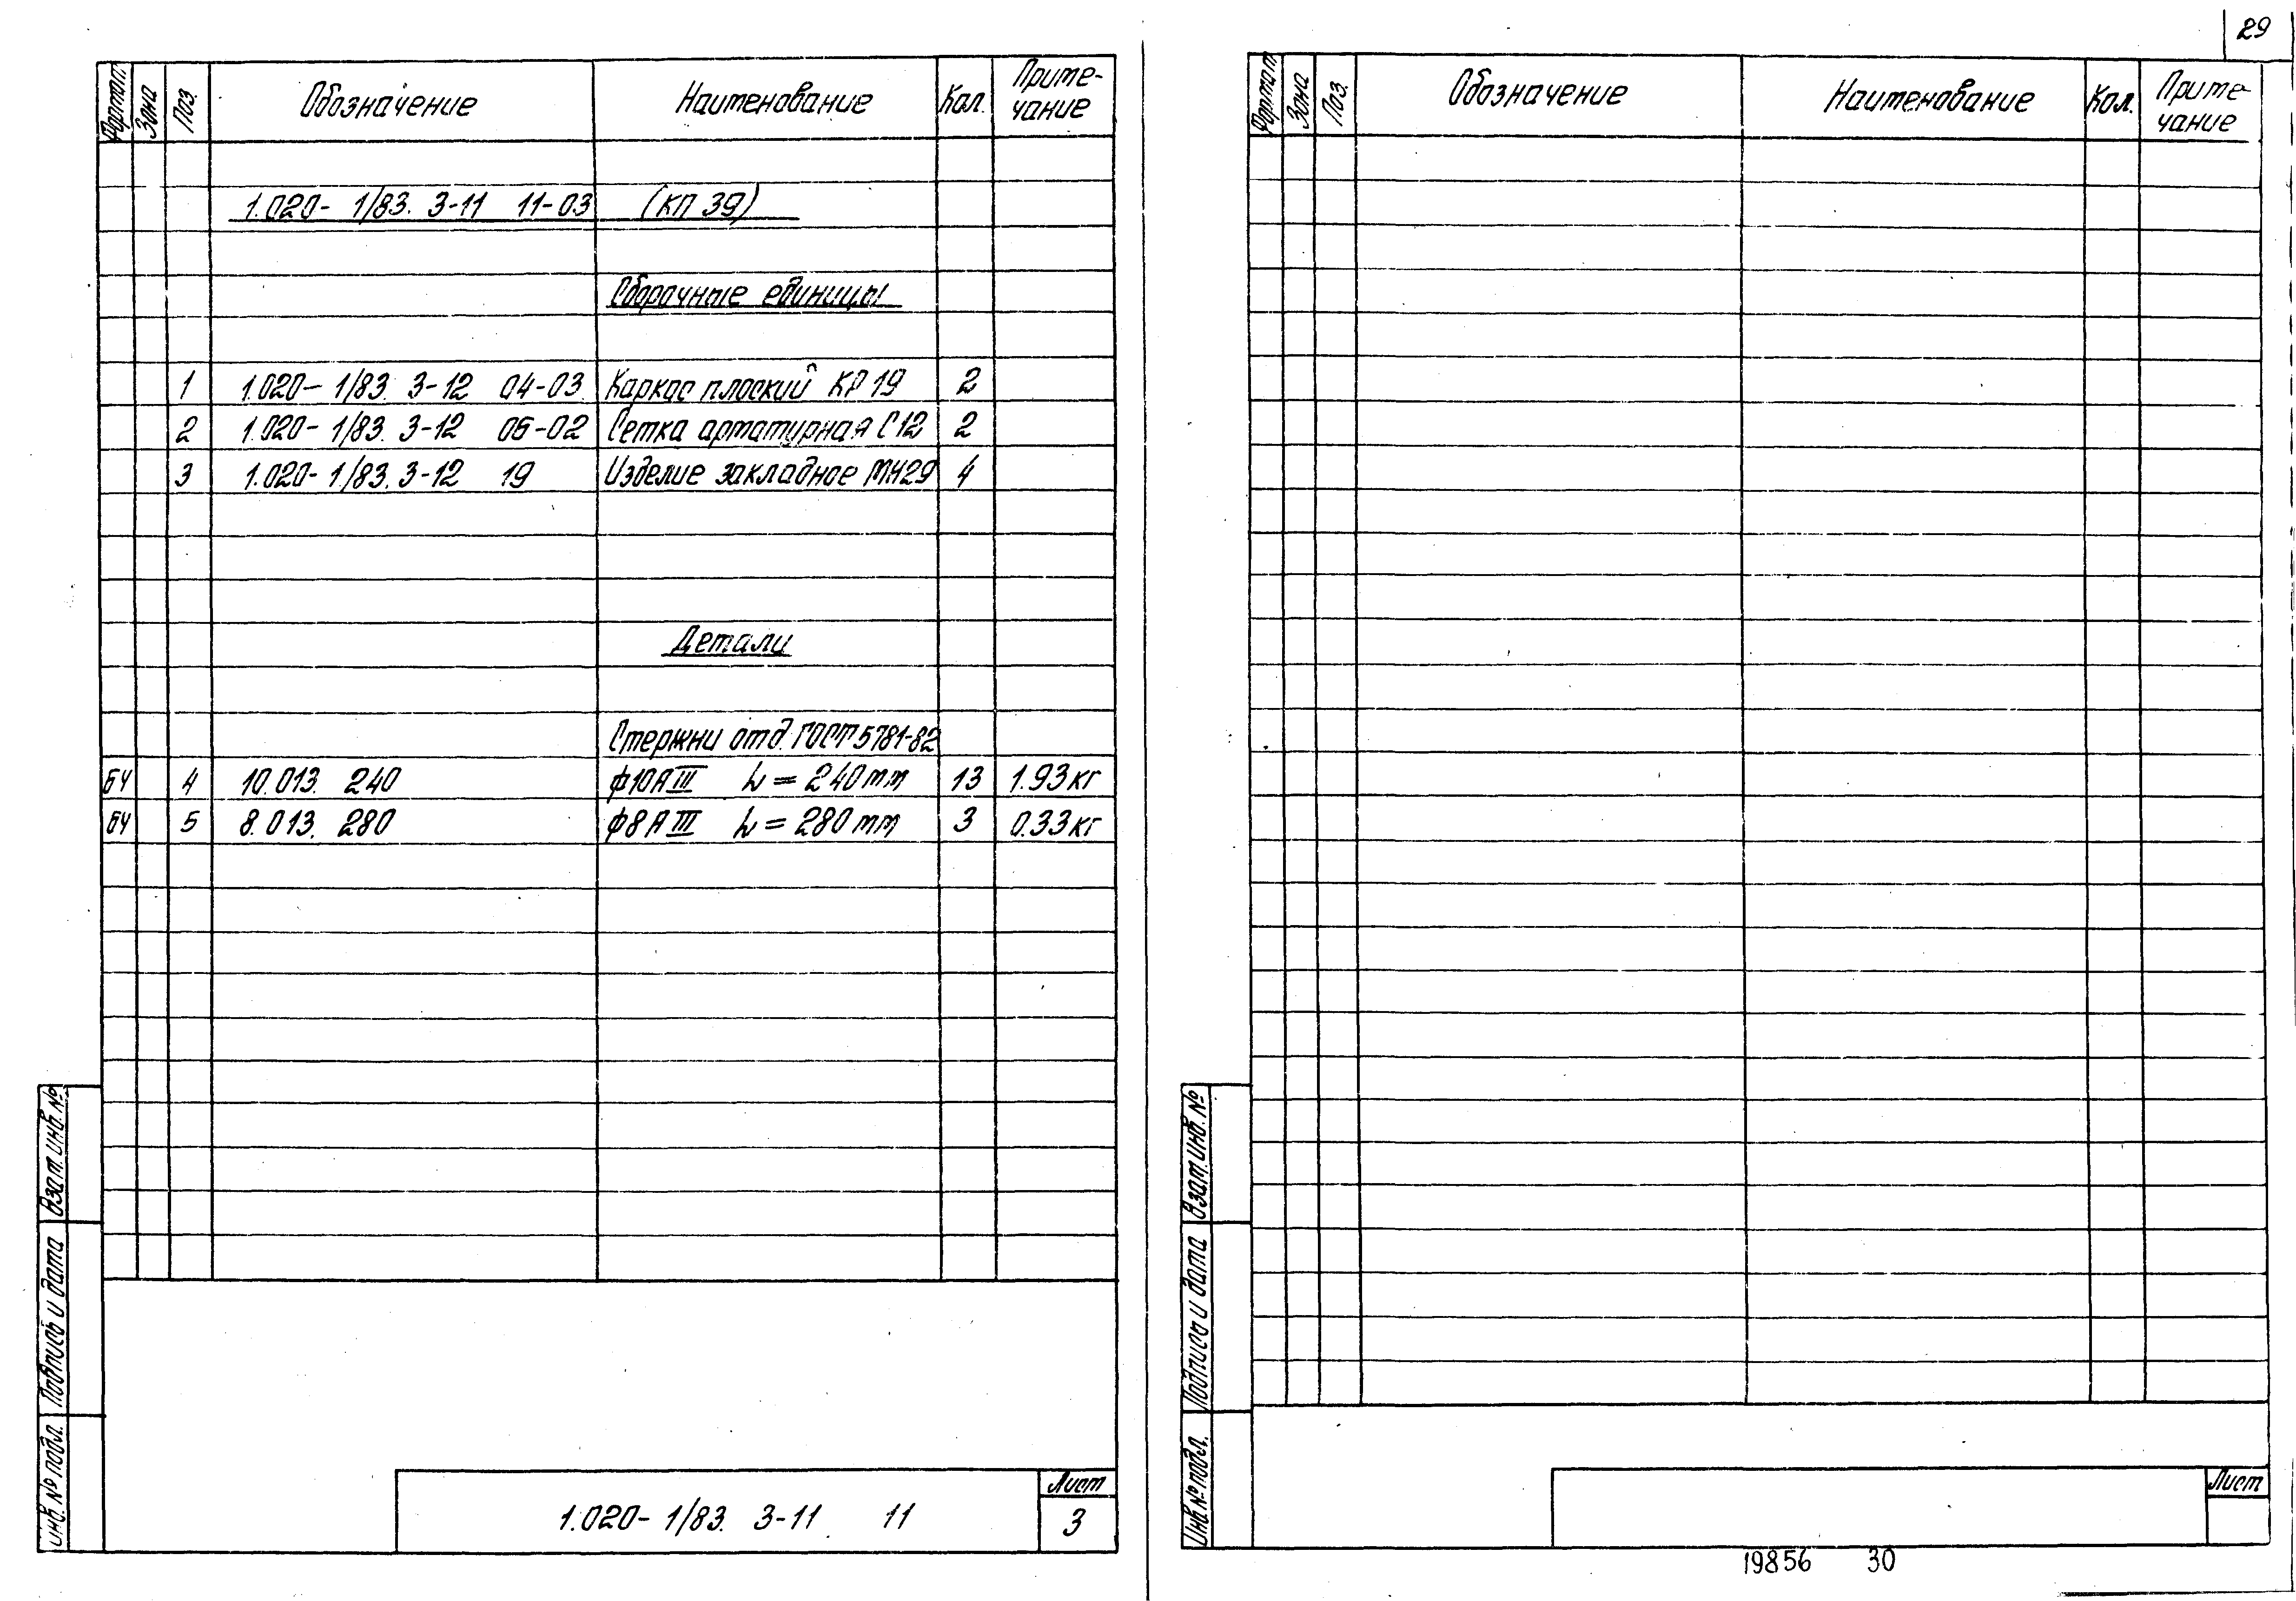 29
Формат Зона Поз. Обозначение Наименование Кол. Приме-
чание
1.020-1/83. 3-11 11-03 (КП 39)
Сборочные единицы
1 1.020-1/83. 3-12 04-03 Каркас плоский КР 19 2
2 1.020-1/83. 3-12 06-02 Сетка арматурная С12 2
3 1.020-1/83. 3-12 19 Изделие закладное МН29 4
Детали
Стержни отд. ГОСТ 5781-82
БЧ 4 10.013. 240 ф10АIII L=240мм 13 1.93кг
БЧ 5 8.013. 280 ф8АIII L=280мм 3 0.33кг
Взам. инв. №
Подпись и дата
Инв. № подл.
1.020-1/83. 3-11 11
Лист
3
Формат Зона Поз. Обозначение Наименование Кол. Приме-
чание
Взам. инв. №
Подпись и дата
Инв. № подл.
Лист
19856 30